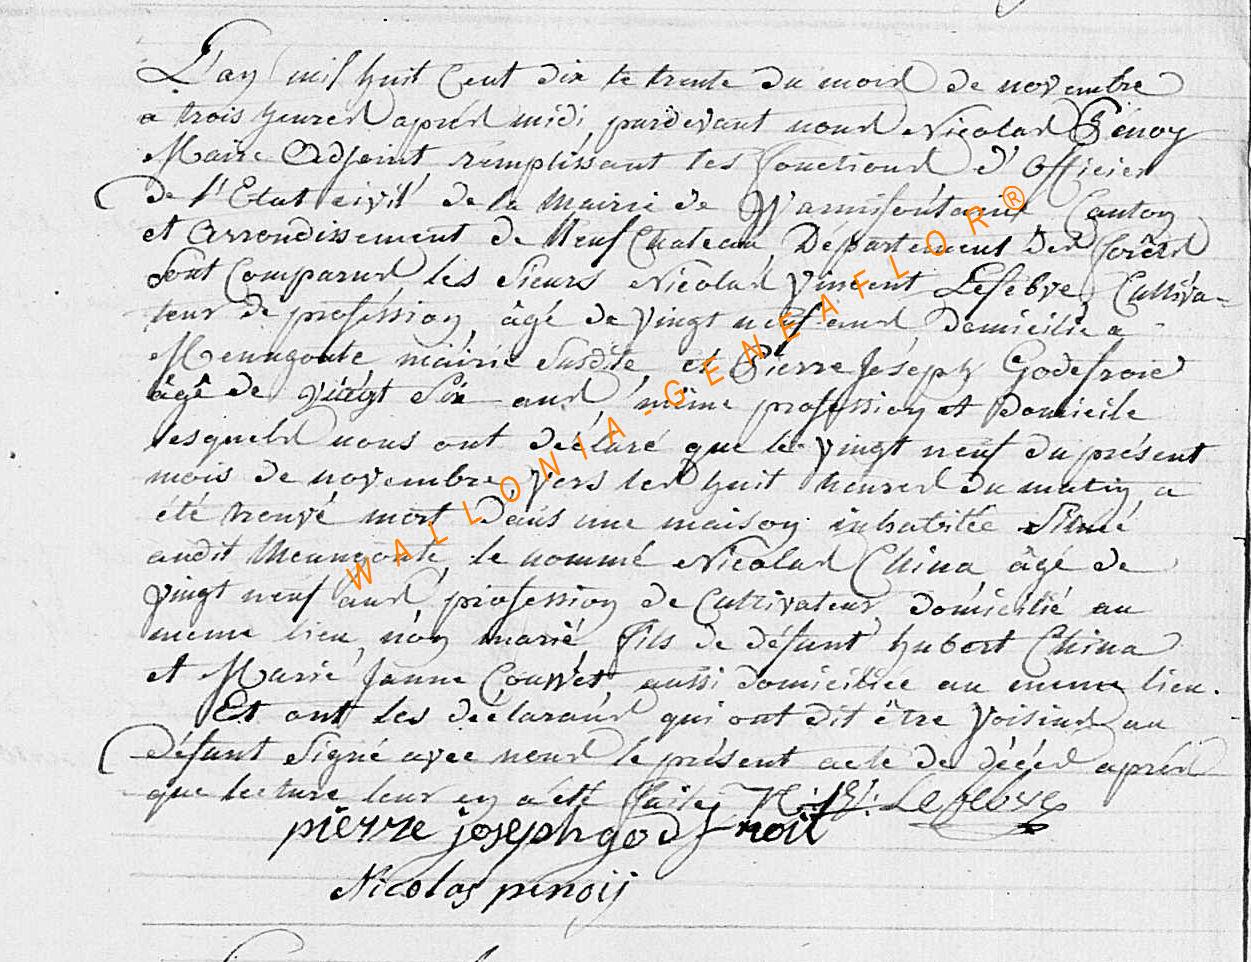 L'an mil huit Cent dix le trente du mois de novembre
a trois heures après midi, pardevant nous Nicolas Penoy
Maire Adjoint remplissant les fonctions d'Officier
de l'Etat civil de la Mairie de Warmifontaine Canton
et Arrondissement de Neufchateau, Département des forêts
sont Comparus les sieurs Nicolas Vincent Lefebvre, Cultiva-
teur de profession, âgé de vingt neuf ans domicilié a
Menugoute mairie susdite et Pierre Joseph Godefroid
âgé de vingt six ans, même profession et domicile
lesquels nous ont declaré que le vingt neuf du présent
mois de novembre, vers les huit heures du matin, a
été trouvé mort dans une maison inhabitée située
audit Menugoute, le nommé Nicolas China, âgé de
vingt neuf ans, profession de Cultivateur, domicilié au
meme lieu, non marié, fils de défunt hubert China
et Marie Janne Couvret, aussi domiciliée au meme lieu.
Et ont les declarans qui ont dit être voisins au
défunt signé avec nous le présent acte de décés après
que lecture leur en a été faite, N: V: Lefebvre
pierre joseph godfroit
Nicolas penoij
WALLONIA-GENEAFLOR®